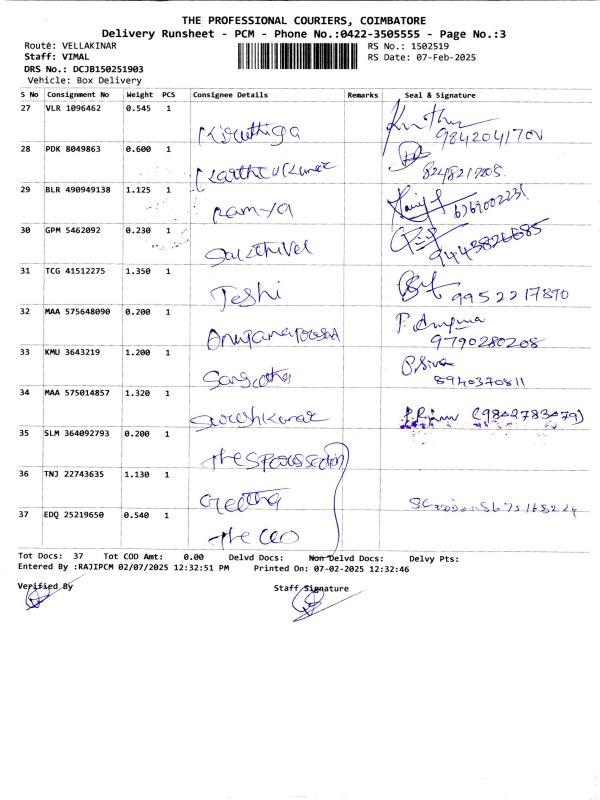 THE PROFESSIONAL COURIERS, COIMBATORE
Delivery Runsheet - PCM - Phone No.:0422-3505555 - Page No.:3
Route: VELLAKINAR RS No.: 1502519
Staff: VIMAL RS Date: 07-Feb-2025
DRS No.: DCJB150251903
Vehicle: Box Delivery
S No Consignment No Weight PCS Consignee Details Remarks Seal & Signature
27 VLR 1096462 0.545 1
Kiruthiga 9842041700
28 PDK 8049863 0.600 1
Karthickumar
29 BLR 490949138 1.125 1
Ramya 6369002231
30 GPM 5462092 0.230 1
Sakthivel 9443826685
31 TCG 41512275 1.350 1
Jeshi 9952217890
32 MAA 575648090 0.200 1
9790280208
33 KMU 3643219 1.200 1
Sangeetha P.Siva
8940370811
34 MAA 575014857 1.320 1
Sureshkumar (9842783479)
35 SLM 364092793 0.200 1
36 TNJ 22743635 1.130 1
Geetha
37 EDQ 25219650 0.540 1
The CEO
Tot Docs: 37 Tot COD Amt: 0.00 Delvd Docs: Non Delvd Docs: Delvy Pts:
Entered By :RAJIPCM 02/07/2025 12:32:51 PM Printed On: 07-02-2025 12:32:46
Verified By Staff Signature